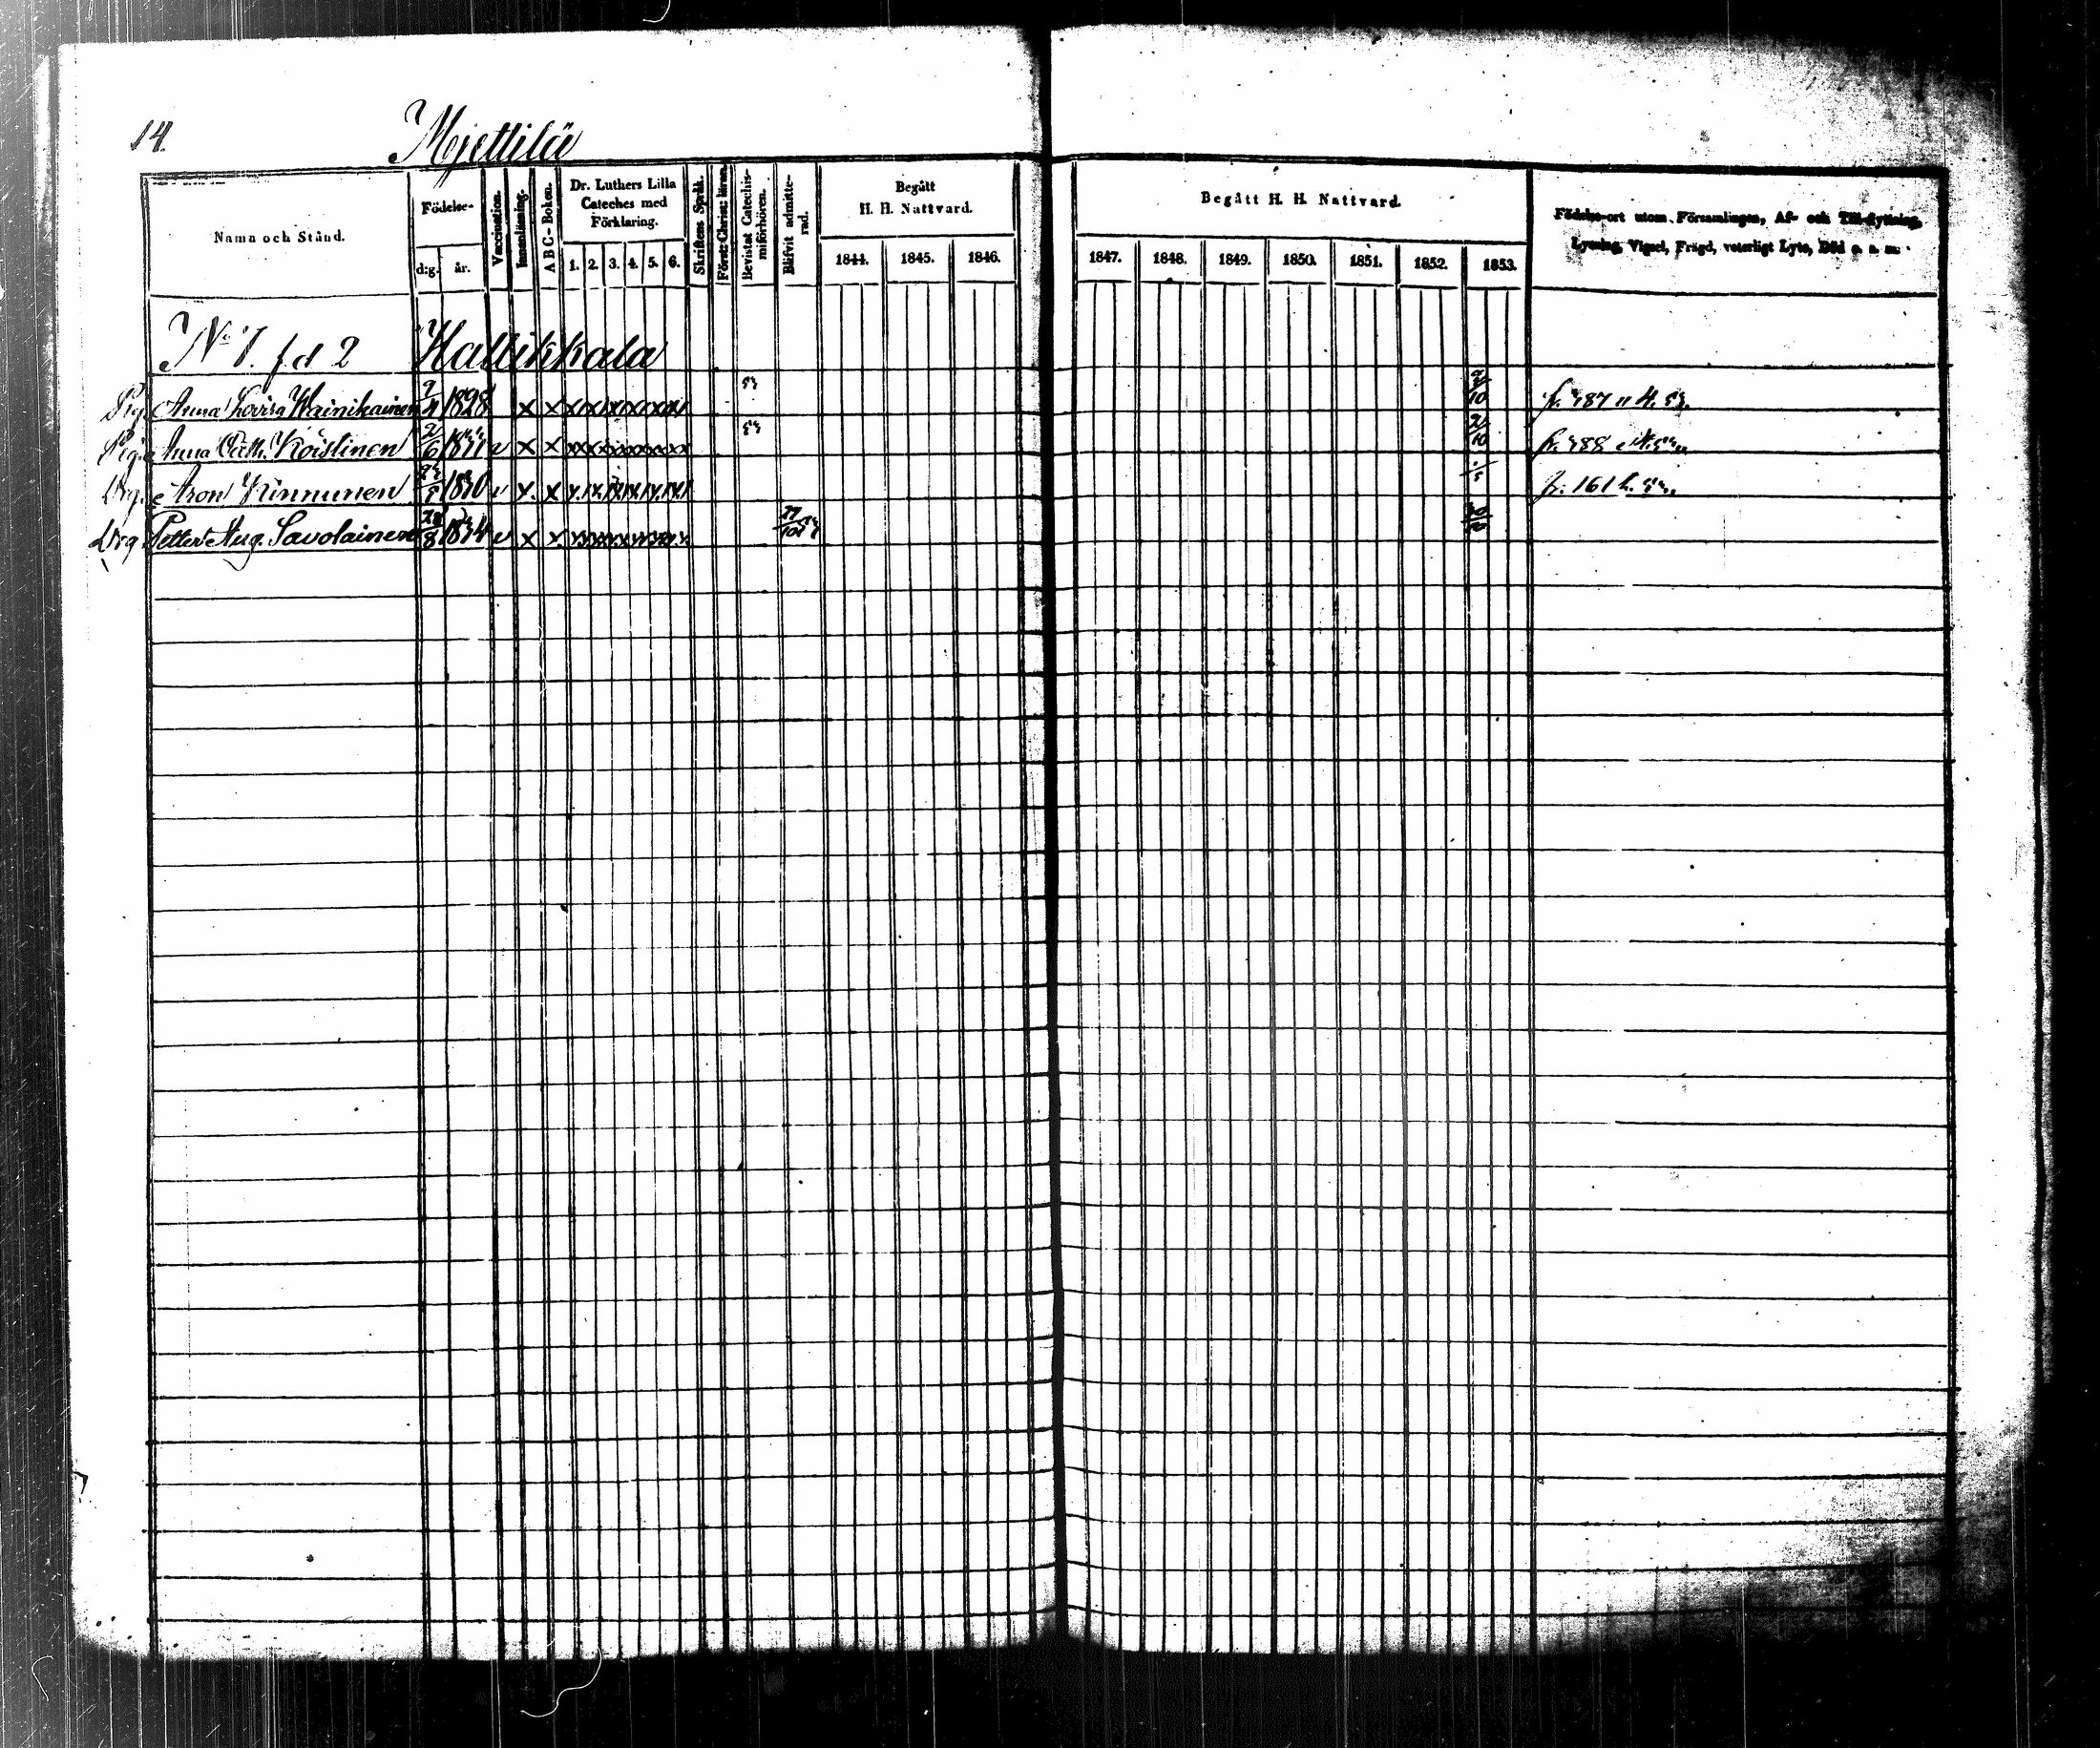 14. Mjettilä
Namn och Stånd. Födelse- d:g. år. Vaccination. Innanläsning. A B C-Boken. Dr. Luthers Lilla Cateches med Förklaring. 1. 2. 3. 4. 5. 6. Skriftens Språk. Förstå Christ: läran. Bevistat Catechis-miförhören. Blifvit admitte-rad. Begått H. H. Nattvard. 1844. 1845. 1846.
Begått H. H. Nattvard. 1847. 1848. 1849. 1850. 1851. 1852. 1853. Födelse-ort utom Församlingen, Af- och Till-flyttning, Lysning, Vigsel, Frägd, veterligt Lyte, Död o. s. m.
No 7. fd 2 Hallikkala
Pig. Anna Lovisa Wainikainen 2/4 1828 x x x x x x x x 53 2/10 fr. 187 H. 53.
Pig. Anna Cath. Koistinen 2/6 v x x x x x x x x 53 2/10 fr. 188
Drg. Aron Kinnunen v x. x x. x. x. x. x. x. fr. 161
Drg. Petter Aug. Savolainen 8 v x x. x x x x x x